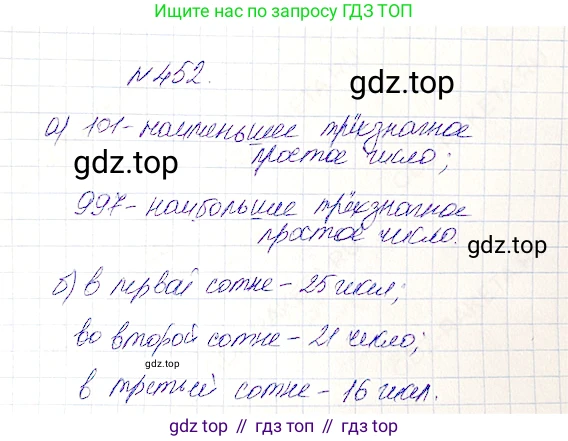 Ищите нас по запросу ГДЗ ТОП
№452.
gdz.top
а) 101 - наименьшее трёхзначное
простое число;
gdz.top
997 - наибольшее трёхзначное
простое число.
gdz.top
б) в первой сотне - 25 чисел;
во второй сотне - 21 число;
gdz.top
в третьей сотне - 16 чисел.
gdz.top // gdz.top // gdz.top